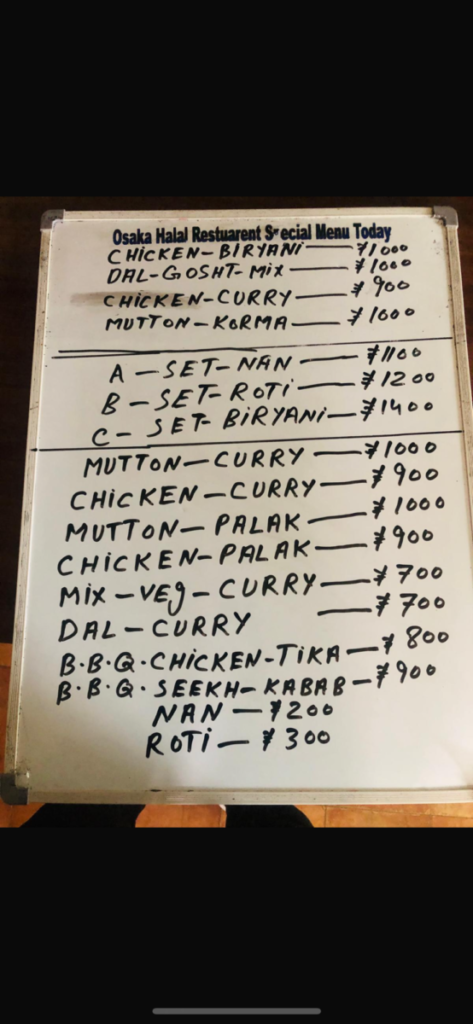 Osaka Halal Restuarent Special Menu Today
CHICKEN-BIRYANI — ¥1000
DAL-GOSHT-MIX — ¥1000
CHICKEN-CURRY — ¥900
MUTTON-KORMA — ¥1000
A-SET-NAN — ¥1100
B-SET-ROTI — ¥1200
C-SET-BIRYANI — ¥1400
MUTTON-CURRY — ¥1000
CHICKEN-CURRY — ¥900
MUTTON-PALAK — ¥1000
CHICKEN-PALAK — ¥900
MIX-VEg-CURRY — ¥700
DAL-CURRY — ¥700
B.B.Q.CHICKEN-TIKA — ¥800
B.B.Q.SEEKH-KABAB — ¥900
NAN — ¥200
ROTI — ¥300